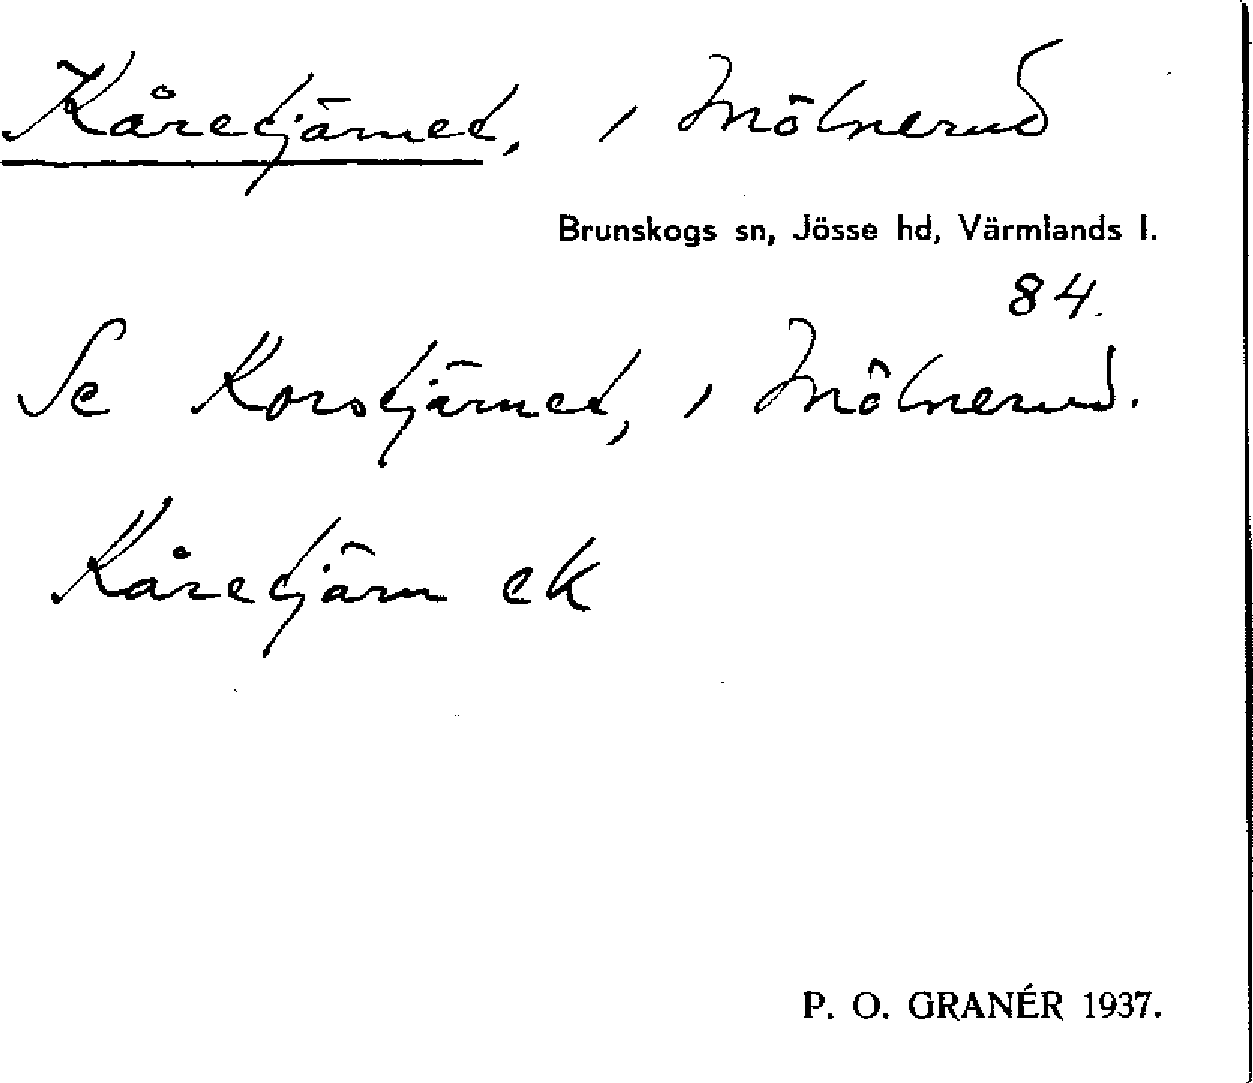 Kåretjärnet, i Mölnerud
Brunskogs sn, Jösse hd, Värmlands l.
84.
Se Korstjärnet, i Mölnerud.
Kåretjärn ek
P. O. GRANÉR 1937.